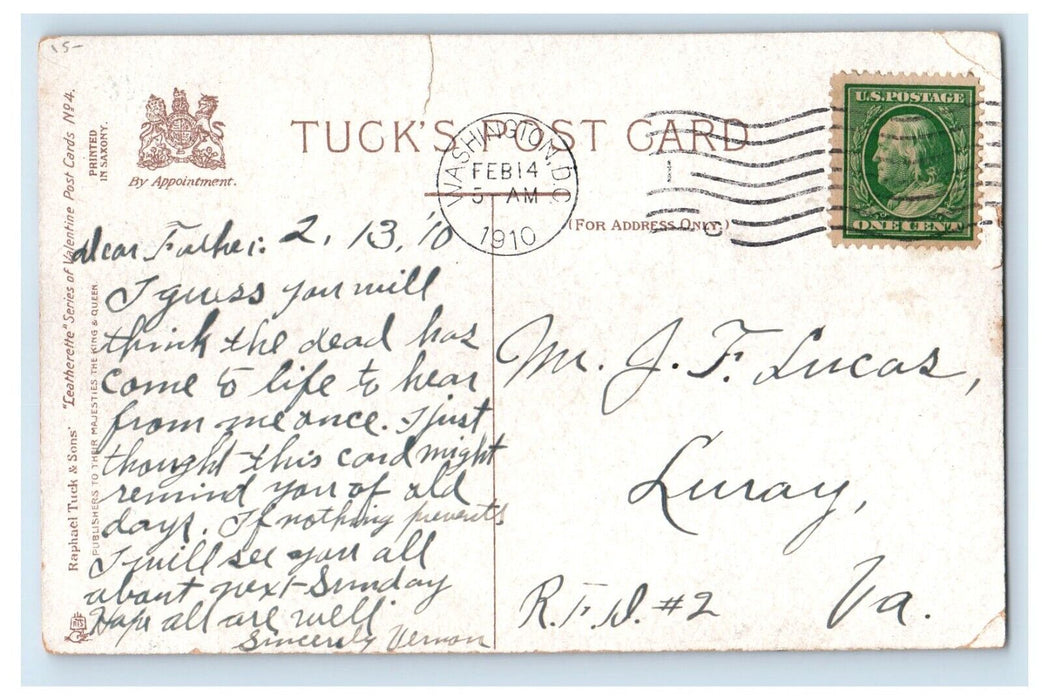 15-
"Leatherette" Series of Valentine Post Cards No 4.
PRINTED
IN SAXONY.
Raphael Tuck & Sons'
PUBLISHERS TO THEIR MAJESTIES THE KING & QUEEN
By Appointment.
TUCK'S POST CARD
WASHINGTON, D.C.
FEB 14
5 AM
1910
1
C
U.S. POSTAGE
ONE CENT
(FOR ADDRESS ONLY.)
dear Father: 2, 13, '10
I guess you will
think the dead has
come to life to hear
from me once. I just
thought this card might
remind you of old
days. If nothing prevents
I will see you all
about next Sunday
Hope all are well
Sincerely Vernon
Mr. J. F. Lucas,
Luray,
R.F.D. #2 Va.